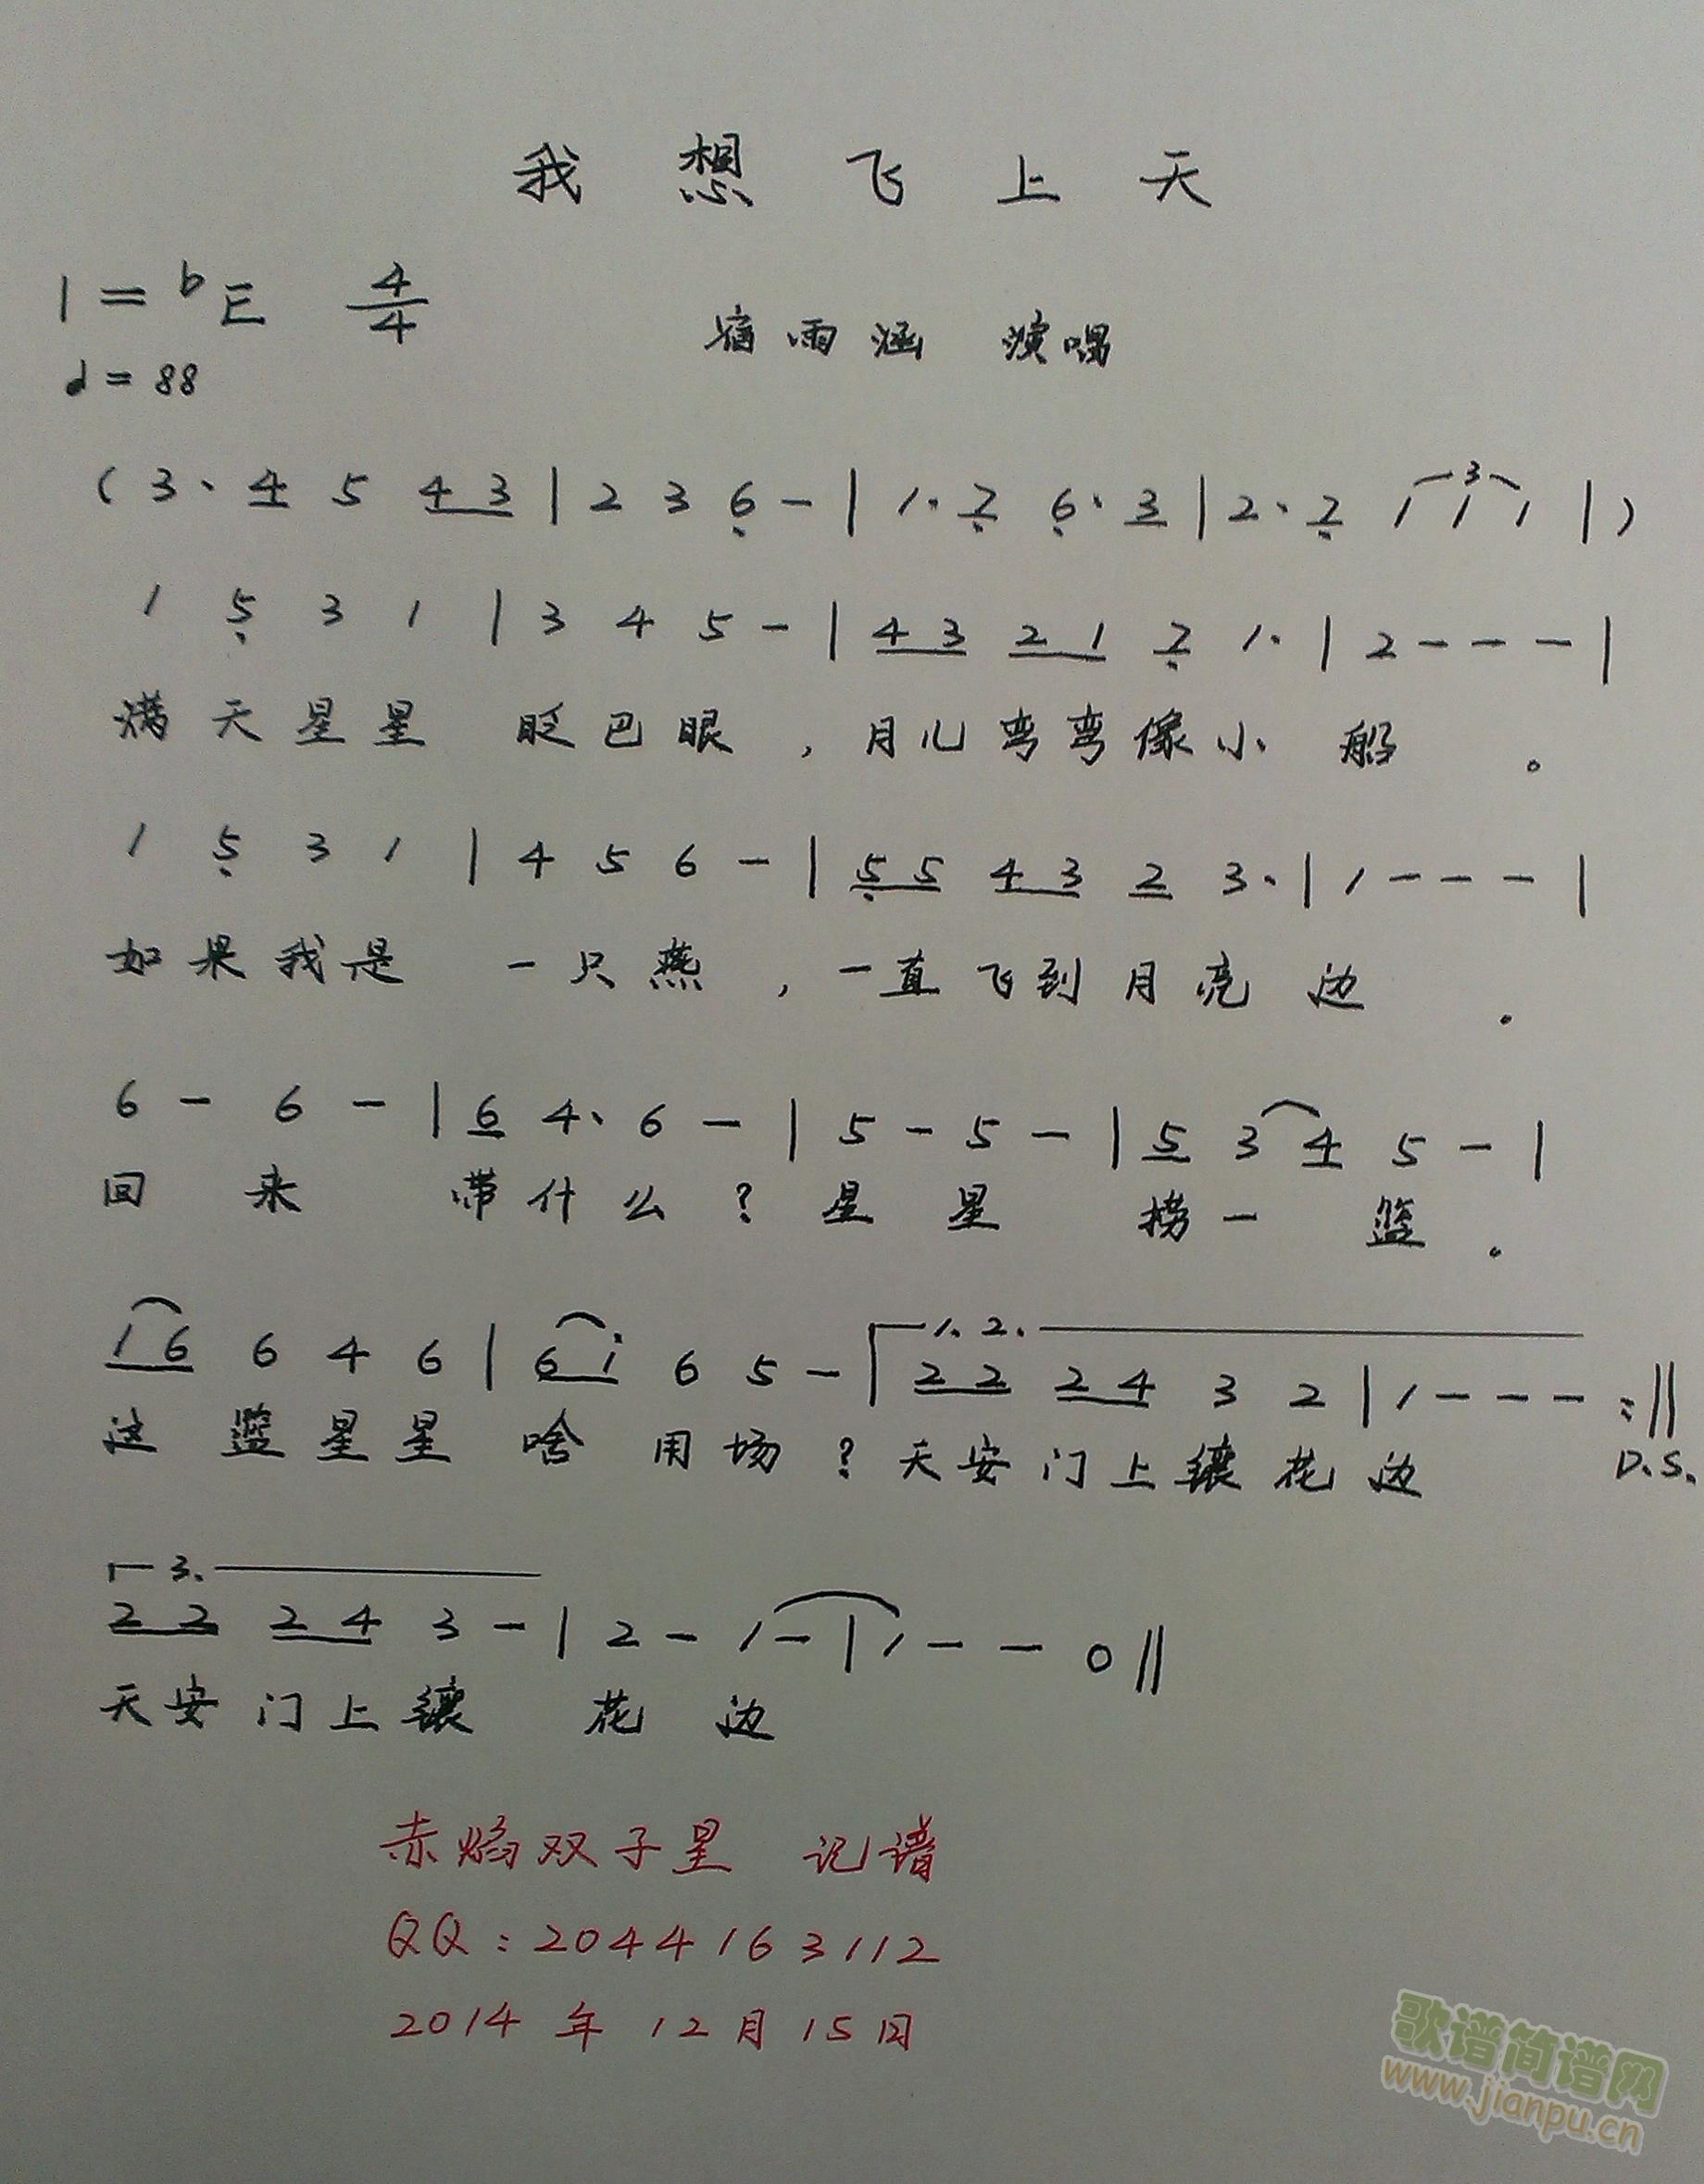 我想飞上天
1=bE 4/4
宿雨涵 演唱
♩=88
(3· 4 5 4 3 | 2 3 6 - | 1· 7 6· 3 | 2· 7 1 1 1 |)
3
1 5 3 1 | 3 4 5 - | 4 3 2 1 7 1· | 2 - - - |
满天星星 眨巴眼，月儿弯弯像小船。
1 5 3 1 | 4 5 6 - | 5 5 4 3 2 3· | 1 - - - |
如果我是 一只燕，一直飞到月亮边.
6 - 6 - | 6 4· 6 - | 5 - 5 - | 5 3 4 5 - |
回来 带什么？星星 捞一篮.
1.2.
1 6 6 4 6 | 6 i 6 5 - | 2 2 2 4 3 2 | 1 - - - :||
这篮星星啥用场？天安门上镶花边 D.S.
3.
2 2 2 4 3 - | 2 - 1 - | 1 - - 0 ||
天安门上镶 花边
赤焰双子星 记谱
QQ:2044163112
2014年12月15日
歌谱简谱网
www.jianpu.cn